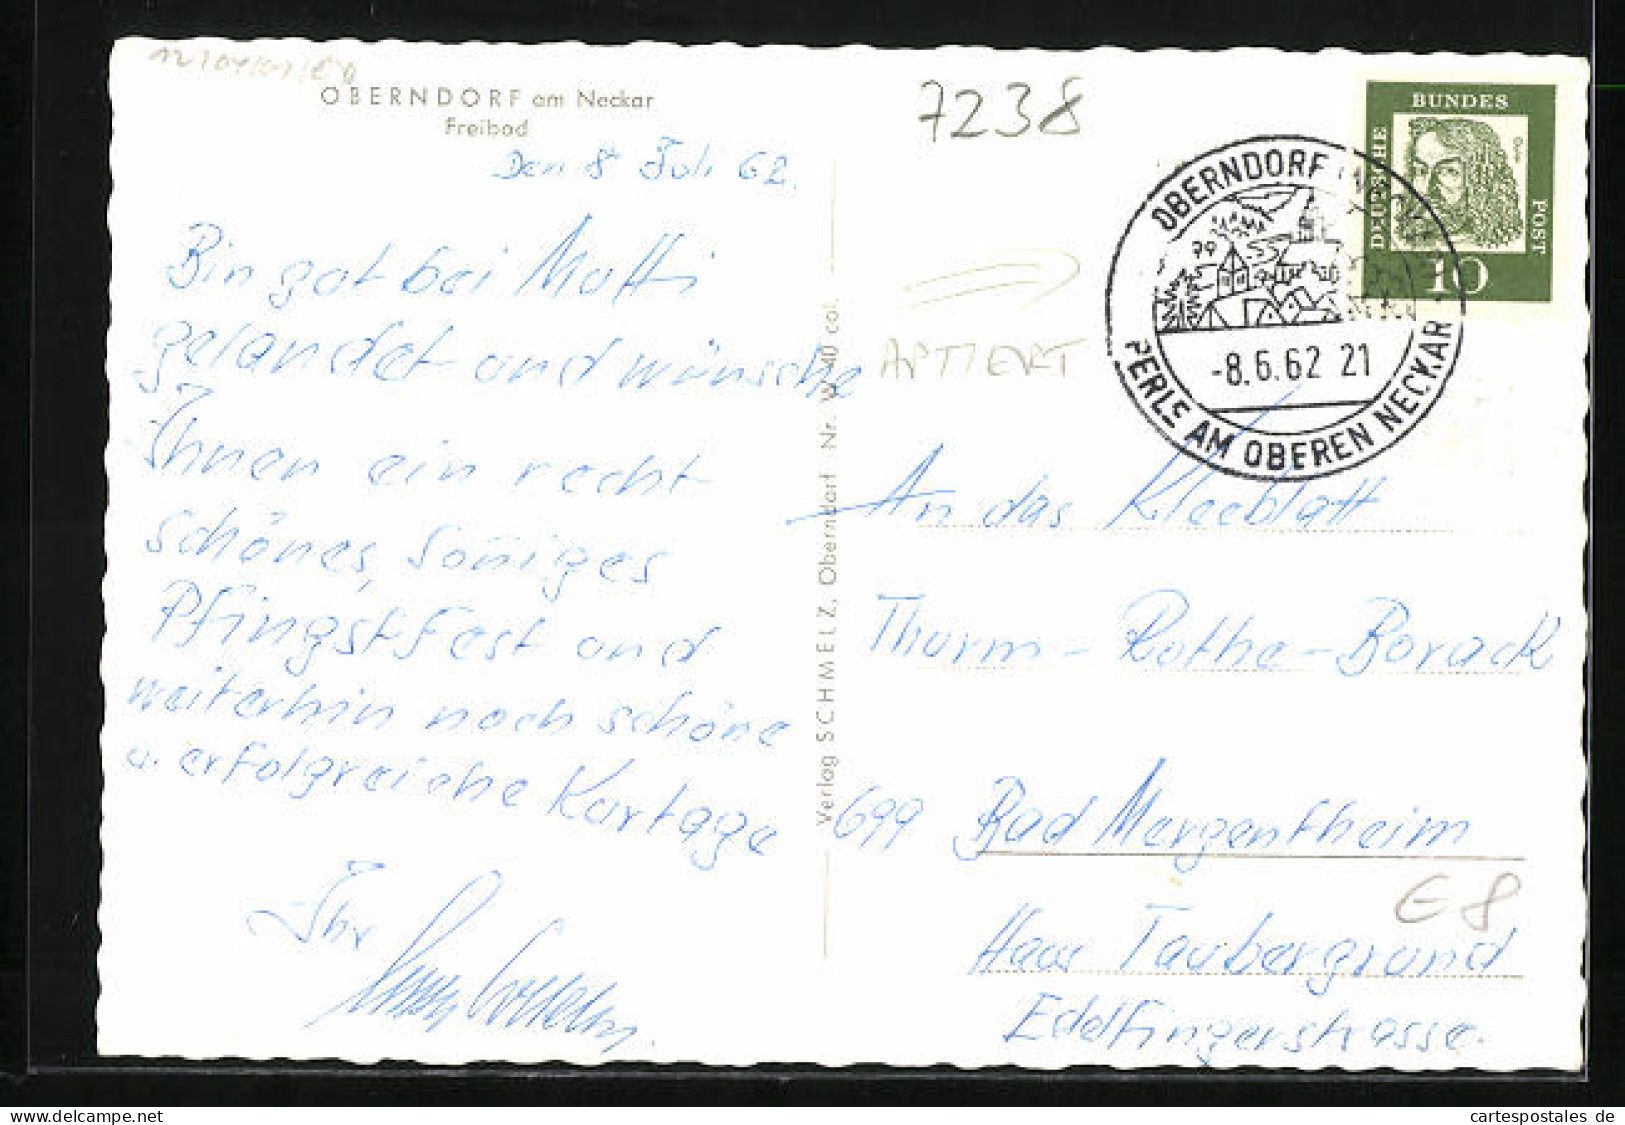 OBERNDORF am Neckar
Freibad
Den 8. Juli 62.
Bin gut bei Mutti
gelandet und wünsche
Ihnen ein recht
schönes, soñiges
Pfingstfest und
weiterhin noch schöne
u. erfolgreiche Kurtage
Ihr
Verlag SCHMELZ, Oberndorf Nr. W 40 col.
7238
APTIERT
BUNDES
DEUTSCHE
POST
10
OBERNDORF
-8.6.62 21
PERLE AM OBEREN NECKAR
An das Kleeblatt
Thurm - Rothe - Borack
699 Bad Mergentheim
E 8
Haus Taubergrund
Edelfingerstrasse.
Motive-Center
cartespostales de